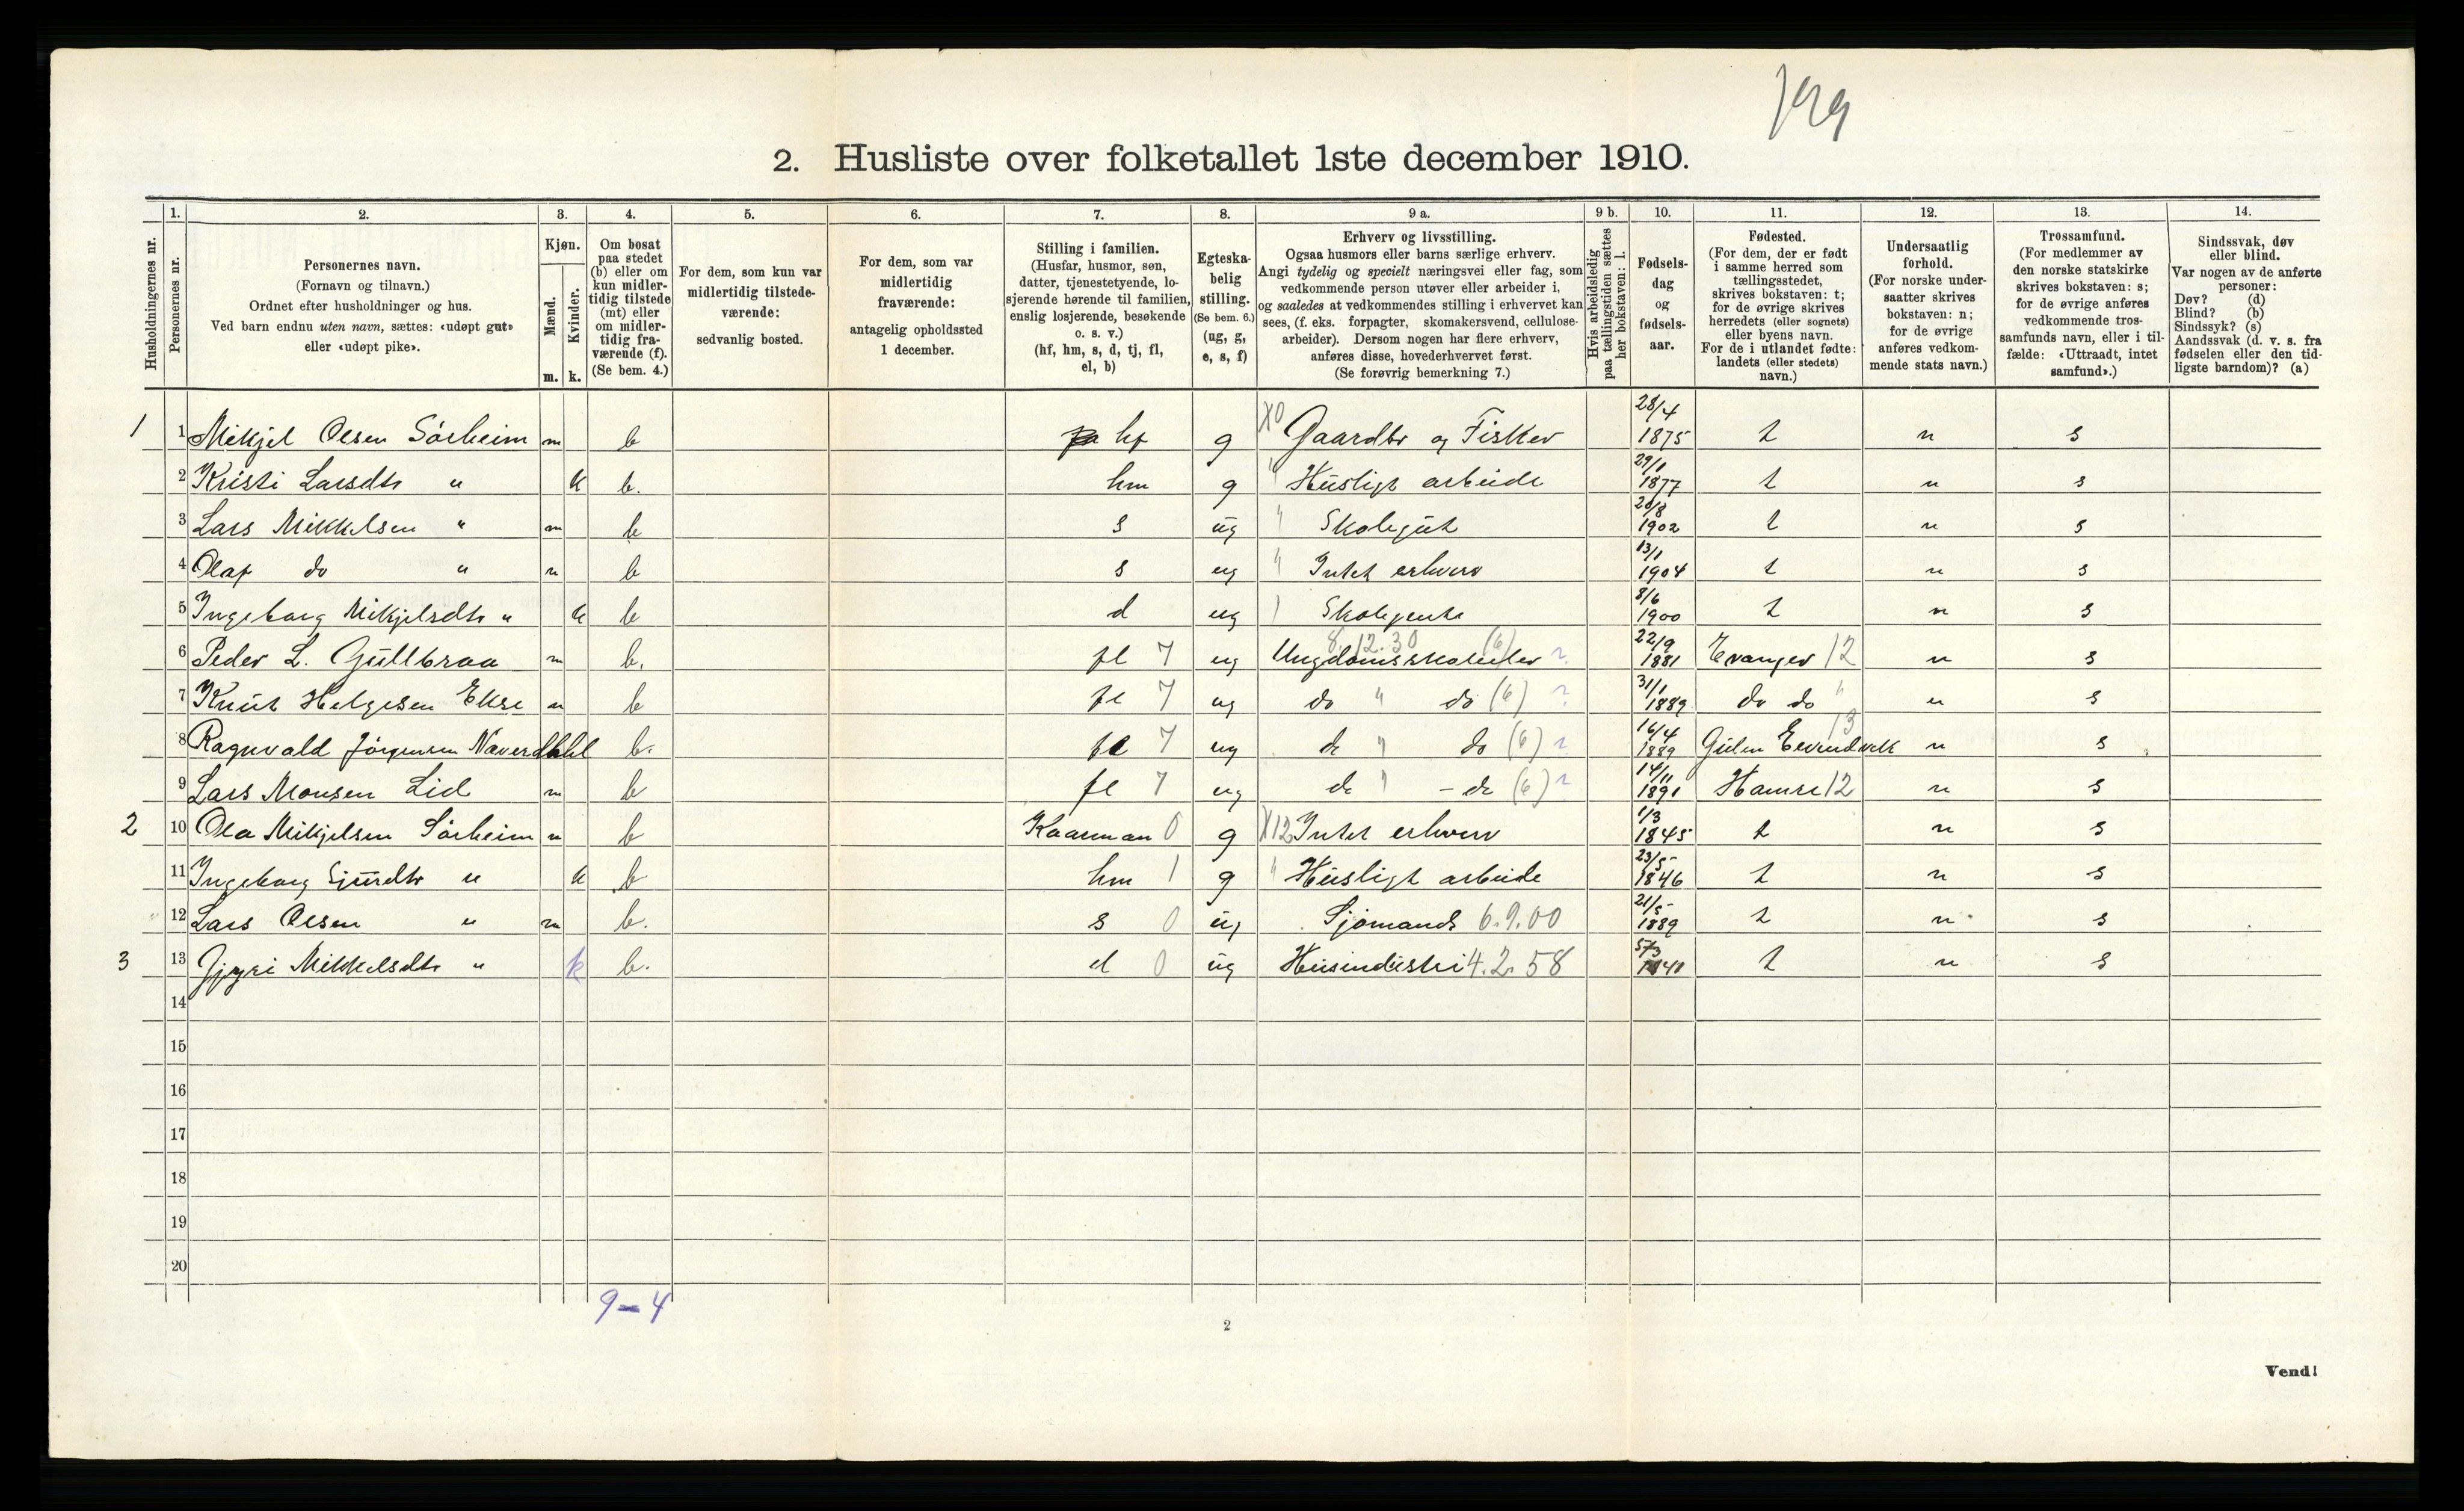 729
2. Husliste over folketallet 1ste december 1910.
Husholdningernes nr.
1.
Personernes nr.
2.
Personernes navn.
(Fornavn og tilnavn.)
Ordnet efter husholdninger og hus.
Ved barn endnu uten navn, sættes: «udøpt gut»
eller «udøpt pike».
3.
Kjøn.
Mænd.
Kvinder.
m. k.
4.
Om bosat
paa stedet
(b) eller om
kun midler-
tidig tilstede
(mt) eller
om midler-
tidig fra-
værende (f).
(Se bem. 4.)
5.
For dem, som kun var
midlertidig tilstede-
værende:
sedvanlig bosted.
6.
For dem, som var
midlertidig
fraværende:
antagelig opholdssted
1 december.
7.
Stilling i familien.
(Husfar, husmor, søn,
datter, tjenestetyende, lo-
sjerende hørende til familien,
enslig losjerende, besøkende
o. s. v.)
(hf, hm, s, d, tj, fl,
el, b)
8.
Egteska-
belig
stilling.
(Se bem. 6.)
(ug, g,
e, s, f)
9 a.
Erhverv og livsstilling.
Ogsaa husmors eller barns særlige erhverv.
Angi tydelig og specielt næringsvei eller fag, som
vedkommende person utøver eller arbeider i,
og saaledes at vedkommendes stilling i erhvervet kan
sees, (f. eks. forpagter, skomakersvend, cellulose-
arbeider). Dersom nogen har flere erhverv,
anføres disse, hovederhvervet først.
(Se forøvrig bemerkning 7.)
9 b.
Hvis arbeidsledig
paa tællingstiden sættes
her bokstaven: l.
10.
Fødsels-
dag
og
fødsels-
aar.
11.
Fødested.
(For dem, der er født
i samme herred som
tællingsstedet,
skrives bokstaven: t;
for de øvrige skrives
herredets (eller sognets)
eller byens navn.
For de i utlandet fødte:
landets (eller stedets)
navn.)
12.
Undersaatlig
forhold.
(For norske under-
saatter skrives
bokstaven: n;
for de øvrige
anføres vedkom-
mende stats navn.)
13.
Trossamfund.
(For medlemmer av
den norske statskirke
skrives bokstaven: s;
for de øvrige anføres
vedkommende tros-
samfunds navn, eller i til-
fælde: «Uttraadt, intet
samfund».)
14.
Sindssvak, døv
eller blind.
Var nogen av de anførte
personer:
Døv? (d)
Blind? (b)
Sindssyk? (s)
Aandssvak (d. v. s. fra
fødselen eller den tid-
ligste barndom)? (a)
1 1 Mikjel Olsen Sörheim m b hf g X0 Gaardbr og Fisker 28/4 1875 t n s
2 Kristi Larsdtr " k b. hm g " Husligt arbeide 29/1 1877 t n s
3 Lars Mikkelsen " m b s ug " Skolegut 20/8 1902 t n s
4 Olaf do " m b s ug " Intet erhverv 13/1 1904 t n s
5 Ingeborg Mikjelsdtr " k b d ug Skolejente 8/6 1900 t n s
6 Peder L. Gullbraa m b. fl 7 ug Ungdomsskoleelev 8.12.30 (6) ? 22/9 1881 Evanger 12 n s
7 Knut Helgesen Ekse m b fl 7 ug do " do (6) ? 31/1 1889 do do " n s
8 Ragnvald Jörgensen Naverdhal b. fl 7 ug do " do (6) ? 16/4 1889 Gulen Eevindvik 13 n s
9 Lars Monsen Lid m b fl 7 ug do " - do (6) ? 14/11 1891 Hamre 12 n s
2 10 Ola Mikjelsen Sörheim m b Kaarman 0 g X12 Intet erhverv 1/3 1845 t n s
11 Ingeborg Sjurdtr " k b hm 1 g " Husligt arbeide 23/5 1846 t n s
12 Lars Olsen " m b. s 0 ug Sjömand 6.9.00 21/5 1889 t n s
3 13 Gjyri Mikkelsdtr " k b. el 0 ug Husindustri 4.2.58 5/3 1841 t n s
14
15
16
17
18
19
20
9-4
2
Vend!